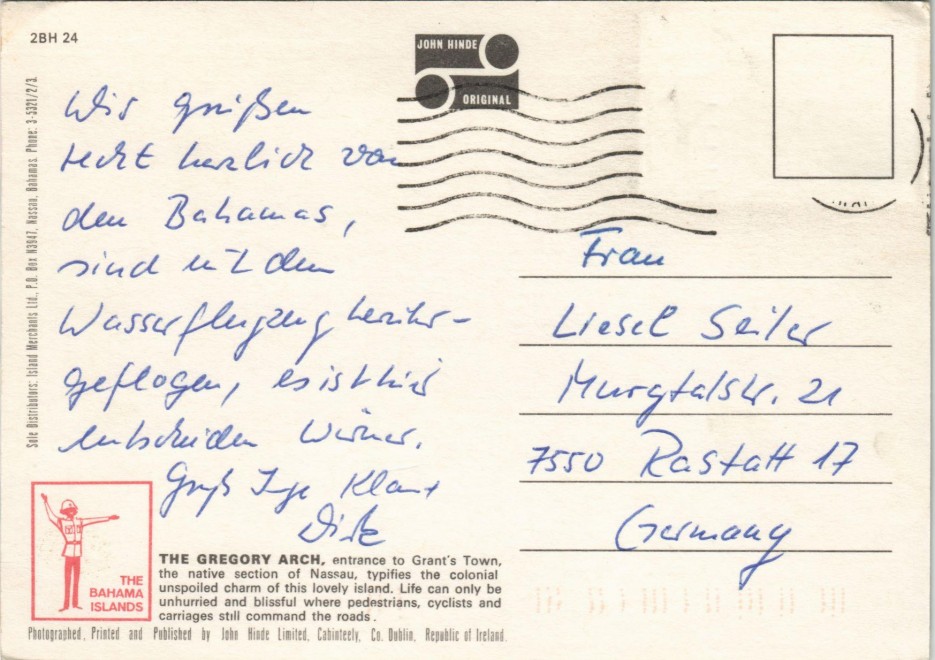 2BH 24
JOHN HINDE
ORIGINAL
Sole Distributors: Island Merchants Ltd., P.O. Box N3947, Nassau, Bahamas. Phone: 3-5321/2/3.
Wir grüßen
recht herzlich von
den Bahamas,
sind mit dem
Wasserflugzeug herüber-
geflogen, es ist hier
entschieden wärmer.
Gruß Inge Klaus
Dirk
Frau
Liesel Seiler
Murgtalstr. 21
7550 Rastatt 17
Germany
THE
BAHAMA
ISLANDS
THE GREGORY ARCH, entrance to Grant's Town,
the native section of Nassau, typifies the colonial
unspoiled charm of this lovely island. Life can only be
unhurried and blissful where pedestrians, cyclists and
carriages still command the roads.
Photographed, Printed and Published by John Hinde Limited, Cabinteely, Co. Dublin, Republic of Ireland.